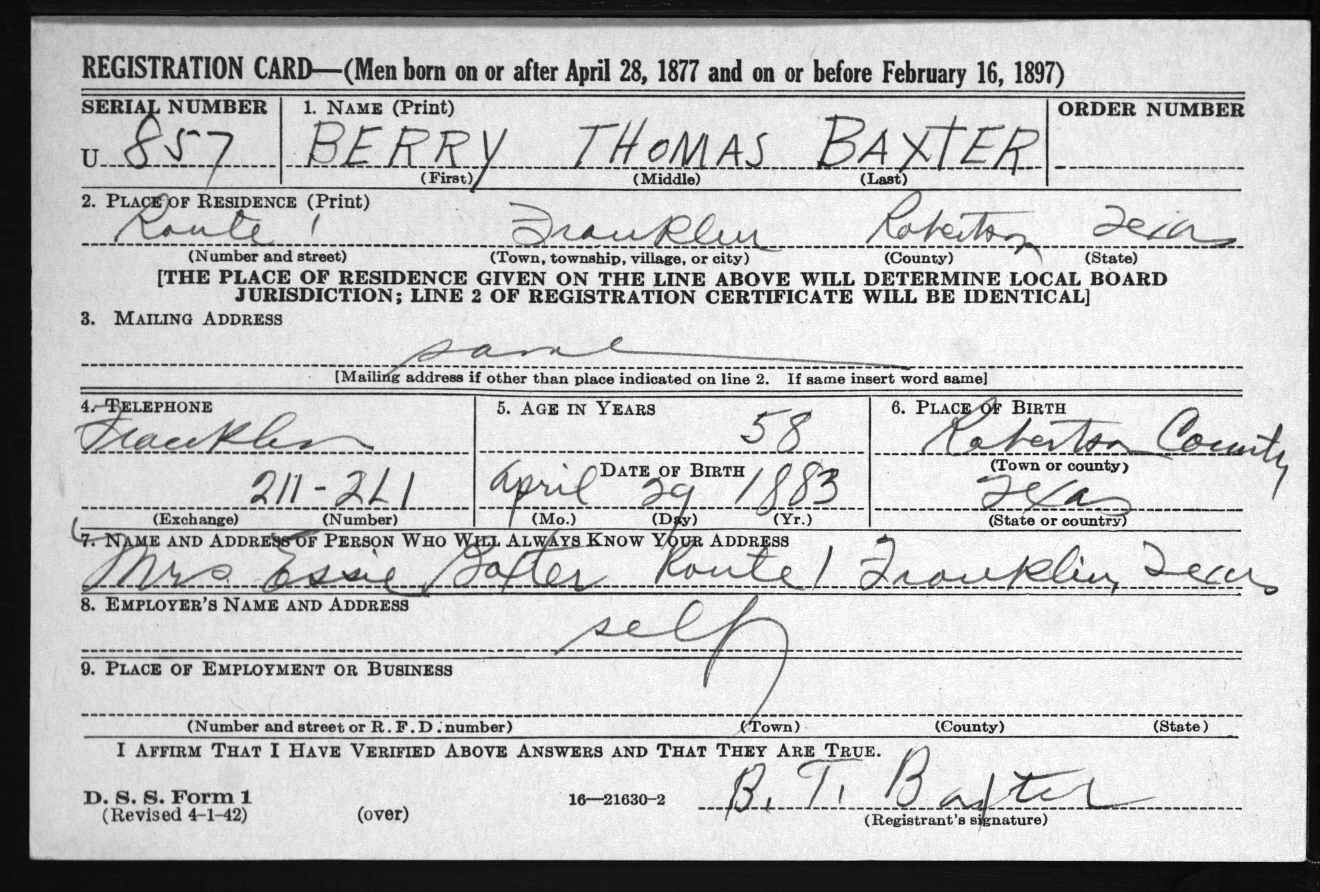 REGISTRATION CARD—(Men born on or after April 28, 1877 and on or before February 16, 1897)
SERIAL NUMBER 1. NAME (Print) ORDER NUMBER
U 857 BERRY THOMAS BAXTER
(First) (Middle) (Last)
2. PLACE OF RESIDENCE (Print)
Route 1 Franklin Robertson Texas
(Number and street) (Town, township, village, or city) (County) (State)
[THE PLACE OF RESIDENCE GIVEN ON THE LINE ABOVE WILL DETERMINE LOCAL BOARD
JURISDICTION; LINE 2 OF REGISTRATION CERTIFICATE WILL BE IDENTICAL]
3. MAILING ADDRESS
same
[Mailing address if other than place indicated on line 2. If same insert word same]
4. TELEPHONE 5. AGE IN YEARS 6. PLACE OF BIRTH
Franklin 58 Robertson County
DATE OF BIRTH (Town or county)
211-2L1 April 29 1883 Texas
(Exchange) (Number) (Mo.) (Day) (Yr.) (State or country)
7. NAME AND ADDRESS OF PERSON WHO WILL ALWAYS KNOW YOUR ADDRESS
Mrs. Essie Baxter Route 1 Franklin, Texas
8. EMPLOYER'S NAME AND ADDRESS
self
9. PLACE OF EMPLOYMENT OR BUSINESS
(Number and street or R. F. D. number) (Town) (County) (State)
I AFFIRM THAT I HAVE VERIFIED ABOVE ANSWERS AND THAT THEY ARE TRUE.
B. T. Baxter
D. S. S. Form 1 16—21630-2
(Revised 4-1-42) (over) (Registrant's signature)